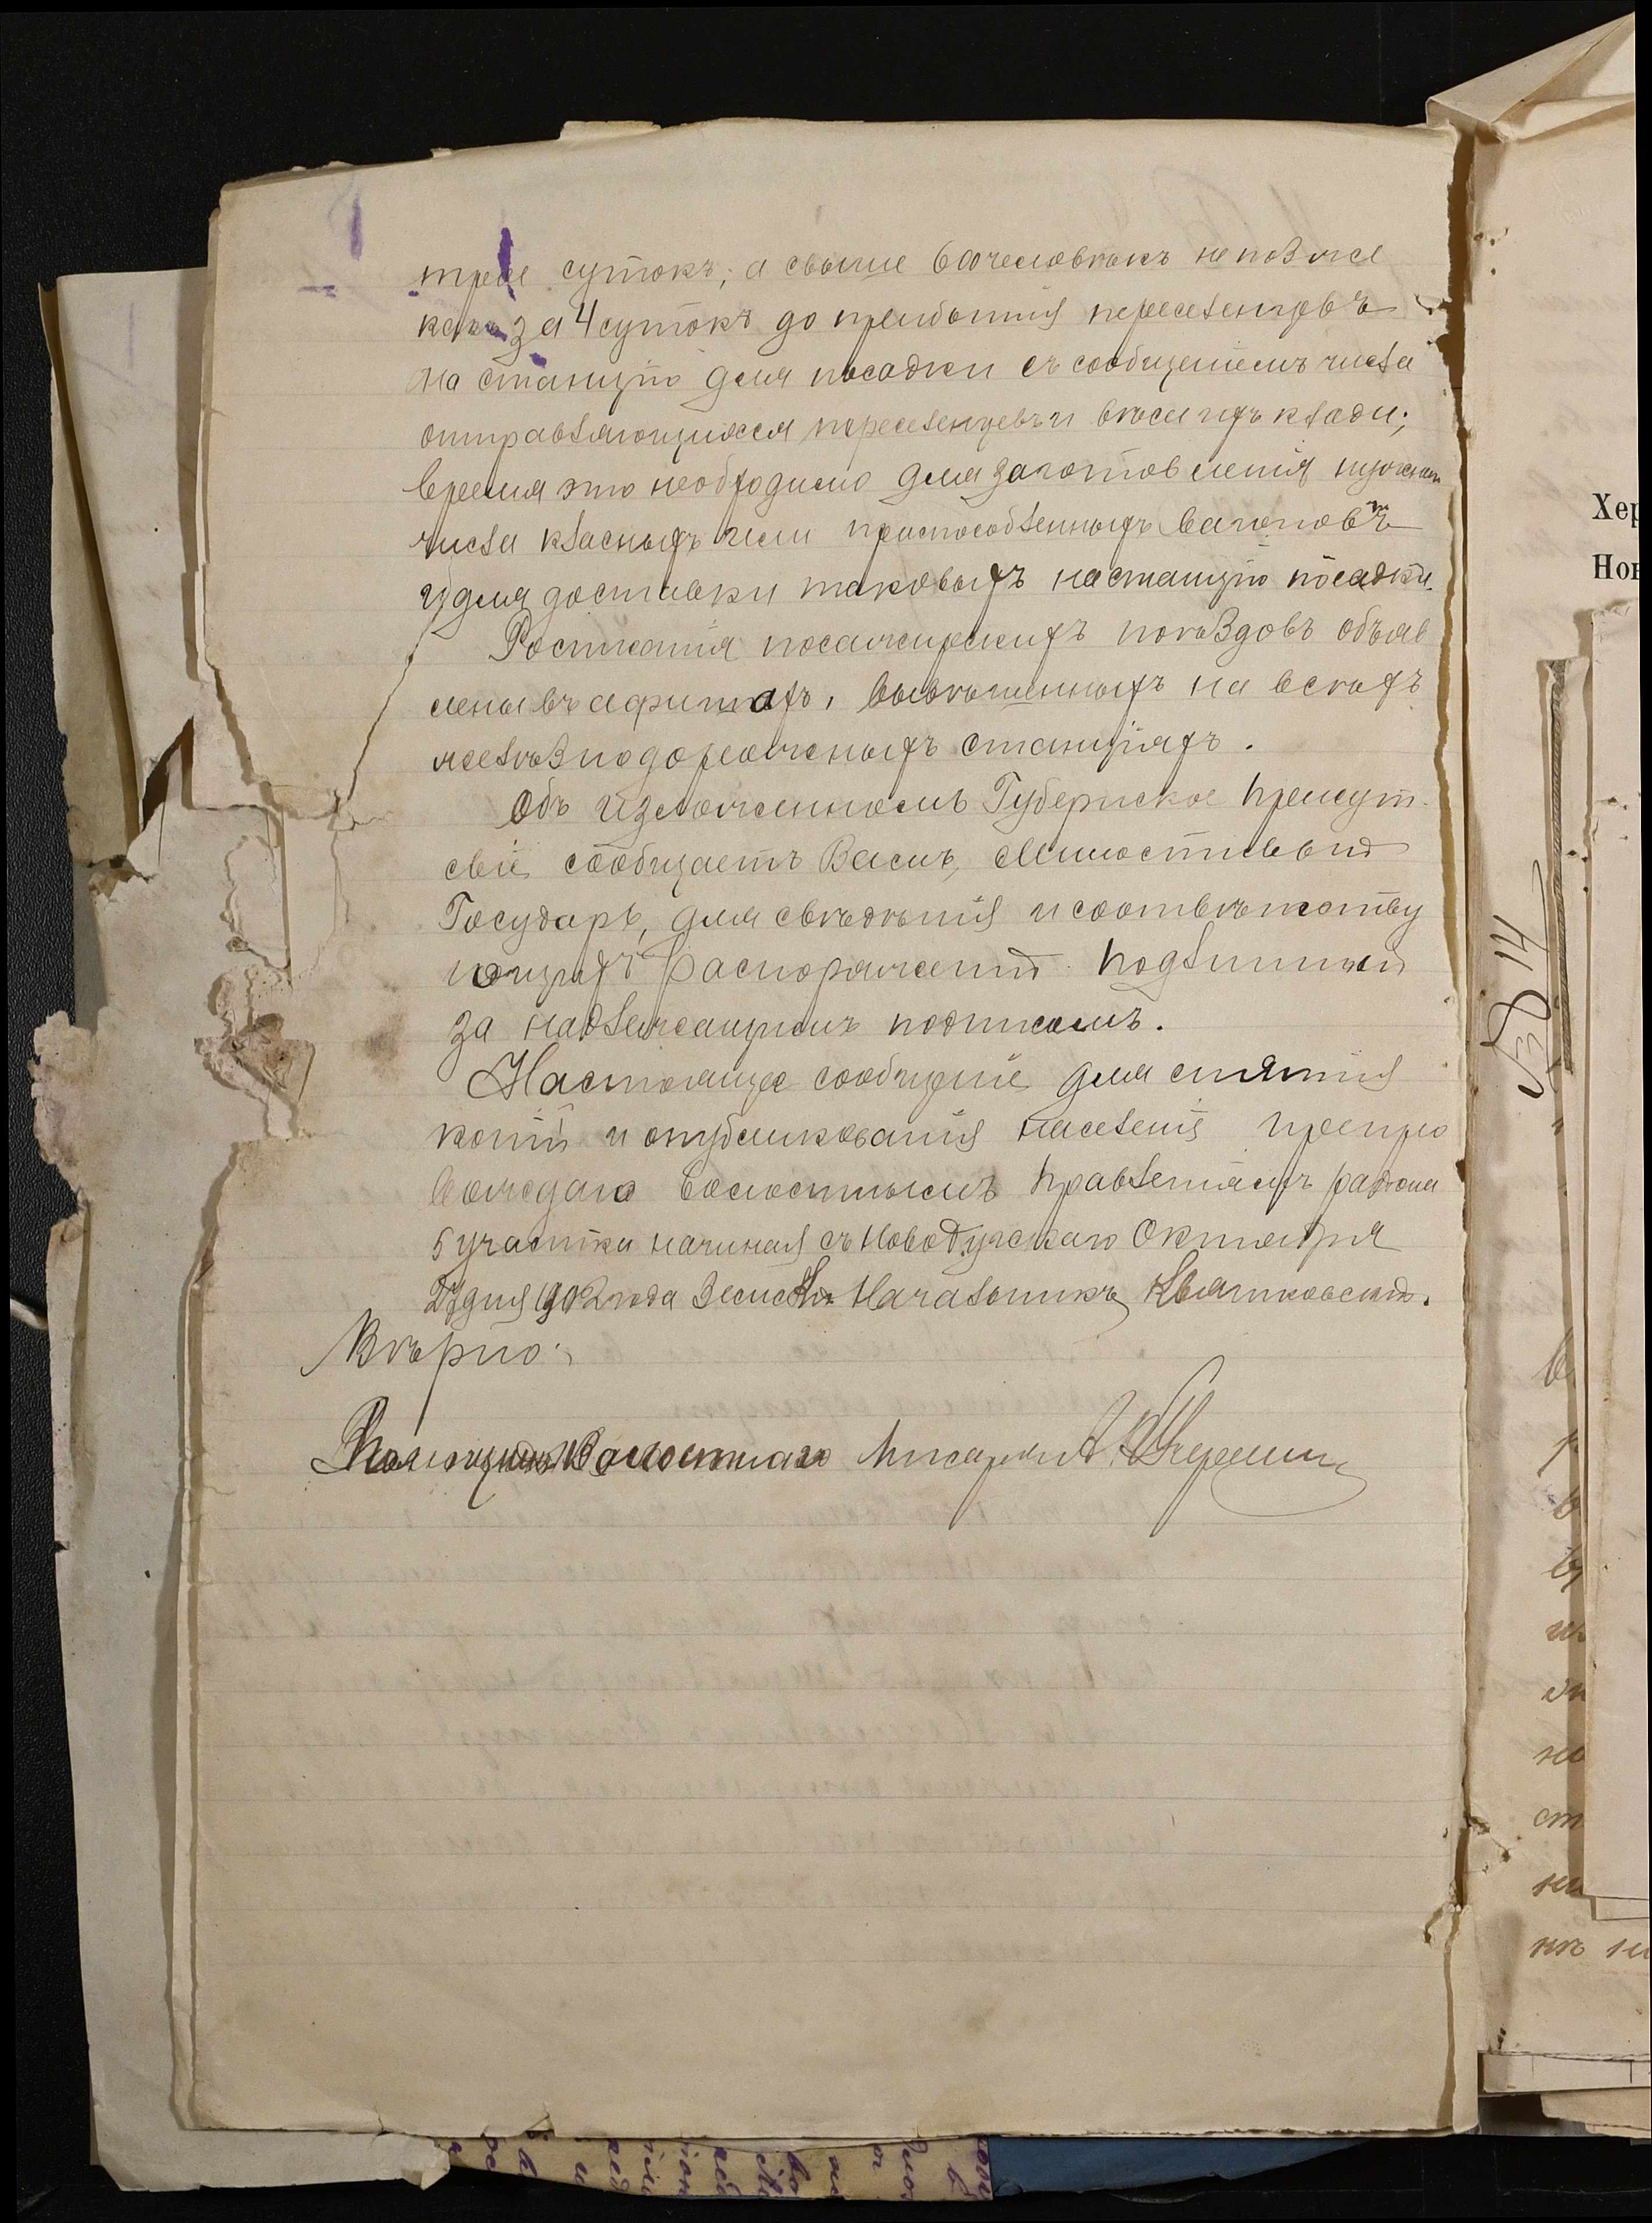 трое сутокъ; а свыше 600 человѣкъ не позже
какъ за 4 сутокъ до прибытія переселенцовъ
на станцію для посадки съ сообщеніемъ числа
отправляющихся переселенцевъ и вѣса ихъ клади;
время это необходимо для заготовленія нужнаго
числа класныхъ или приспособленныхъ вагоновъ
и для доставки таковыхъ на станцію посадки.
Росписанія пасажирскихъ поѣздовъ объяв
лены въ афишахъ, вывѣшенныхъ на всѣхъ
желѣзнодорожныхъ станціяхъ.
Объ изложенномъ Губернское Присут-
свіе сообщаетъ Вамъ, Милостивый
Государь, для свѣдѣнія и соотвѣтству
ющихъ распоряженій. Подлинный
за надлежащимъ подписомъ.
Настоящее сообщеніе для снятія
копій и опубликованія населенію препро
вождаю Волостнымъ Правленіямъ района
5 участка начиная съ Новобугскаго Октября
дня 1902 года Земскій Начальникъ Квятковскій.
Вѣрно:
Помощникъ Волостнаго Писаря
№ 14
Хер
Нов